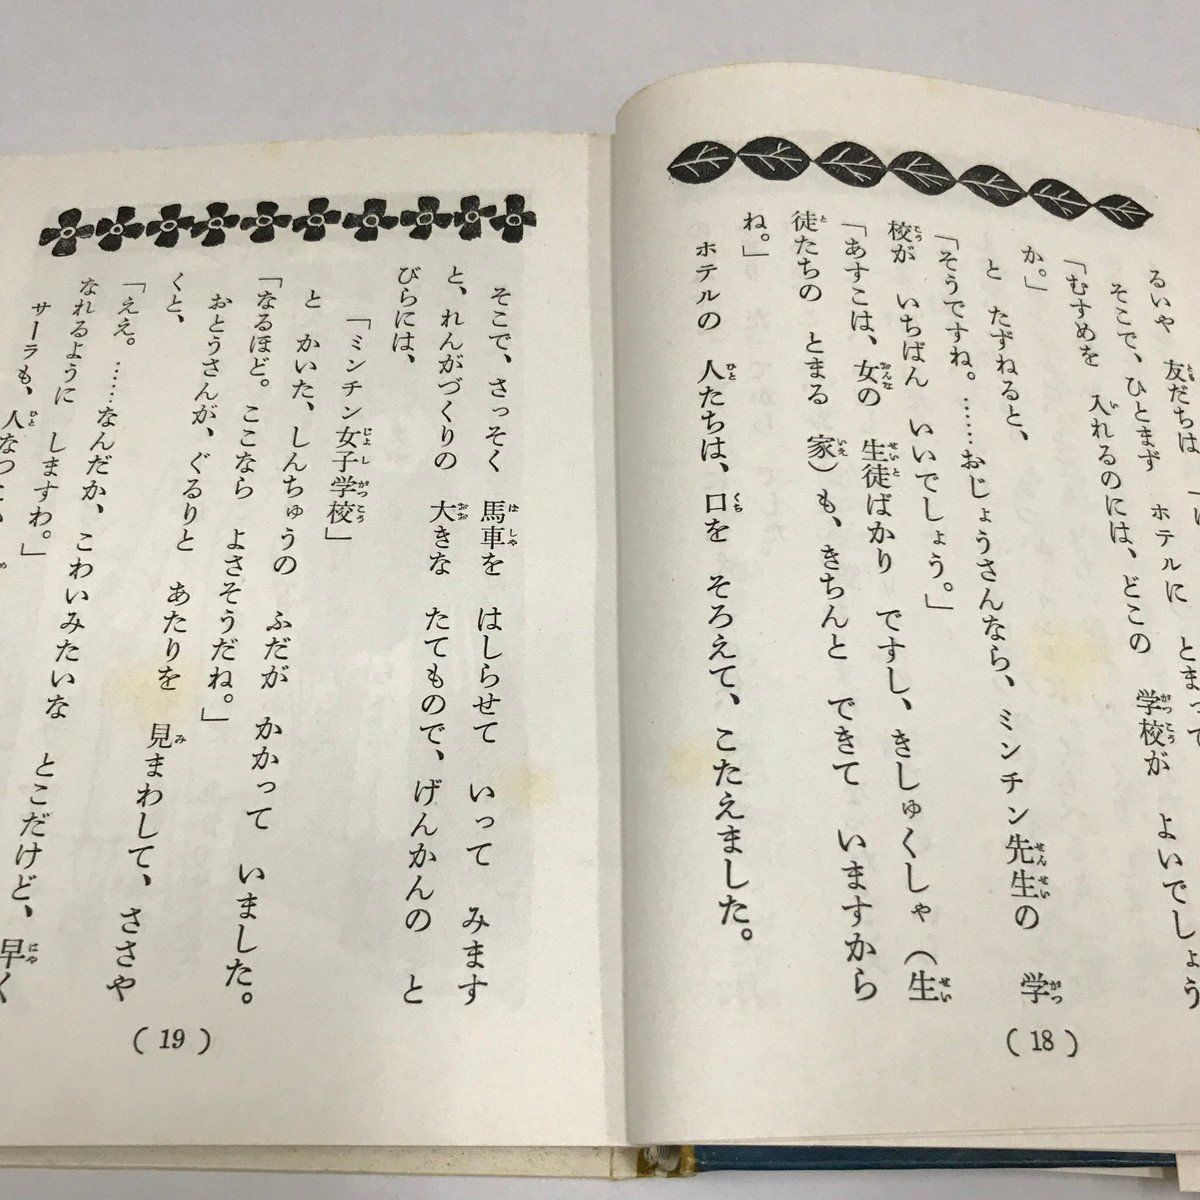 るいや 友だちは
ホテルに とまって
そこで、ひとまず
「むすめを 入れるのには、どこの 学校が よいでしょう
か。」
と たずねると、
「そうですね。……おじょうさんなら、ミンチン先生の 学
校が いちばん いいでしょう。」
「あすこは、女の 生徒ばかり ですし、きしゅくしゃ(生
徒たちの とまる 家)も、きちんと できて いますから
ね。」
ホテルの 人たちは、口を そろえて、こたえました。
(18)
そこで、さっそく 馬車を はしらせて いって みます
と、れんがづくりの 大きな たてもので、げんかんの と
びらには、
「ミンチン女子学校」
と かいた、しんちゅうの ふだが かかって いました。
「なるほど。ここなら よさそうだね。」
おとうさんが、ぐるりと あたりを 見まわして、ささや
くと、
「ええ。……なんだか、こわいみたいな とこだけど、早く
なれるように しますわ。」
サーラも、人なつ
(19)